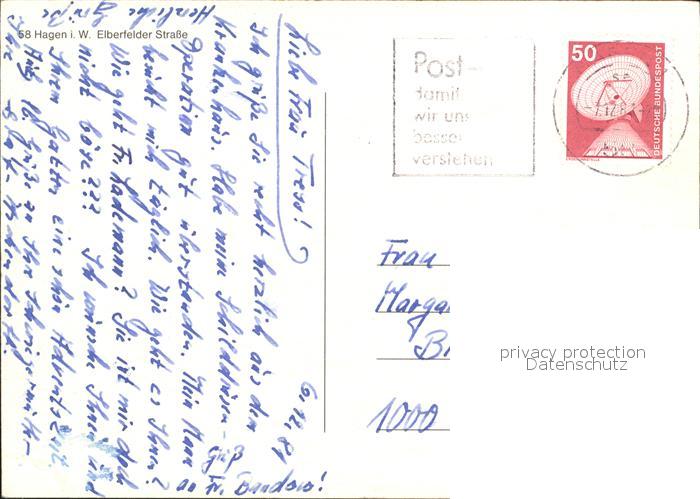 58 Hagen i. W. Elberfelder Straße
Herzliche Grüße
6.12.81
Liebe Frau Tress!
Ich grüße Sie recht herzlich aus dem
Krankenhaus. Habe meine Schilddrüsen-
Operation gut überstanden. Mein Mann
besucht mich täglich. Wie geht es Ihnen?
Wie geht Fr. Lademann? Sie ist mir doch
nicht böse??? Ich wünsche Ihnen und
Ihrem Gatten eine schöne Adventszeit.
Grüße an Ihre Schwiegermutter
Gruß
an Fr. Bandow!
Post-
damit
wir uns
besser
verstehen
50
DEUTSCHE BUNDESPOST
Frau
Marga
B
1000
privacy protection
Datenschutz